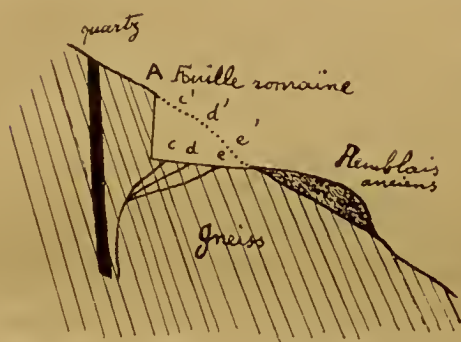 quartz
A Fouille romaine
c' d' e'
c d e
Remblais
anciens
Gneiss